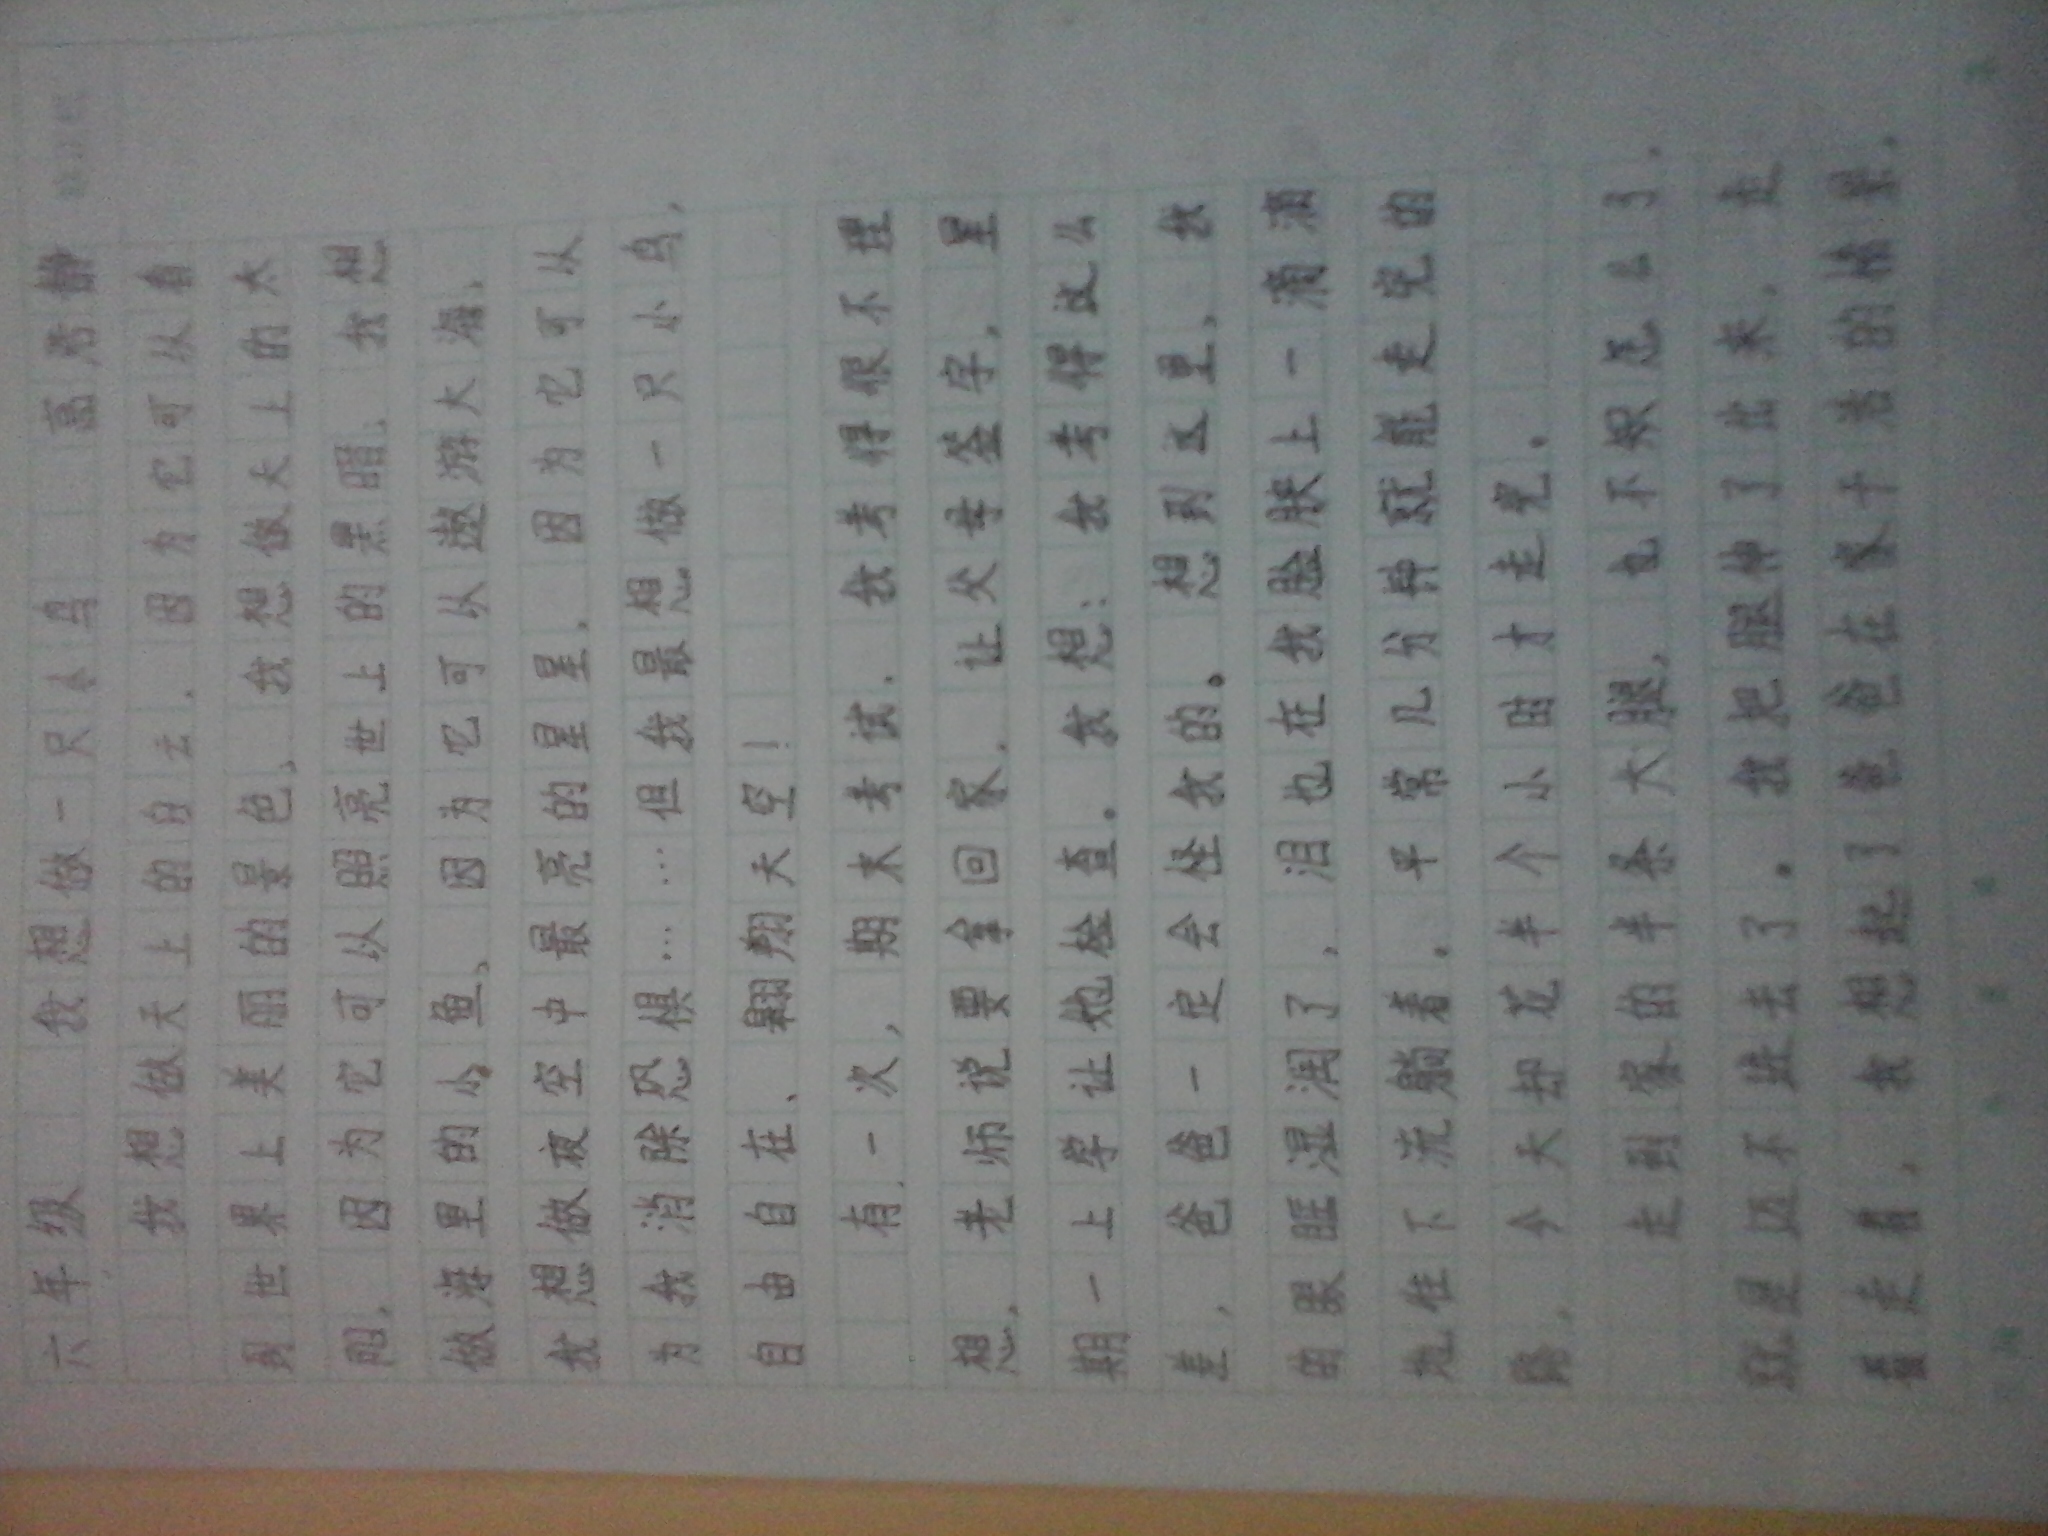 六年级 我想做一只小鸟 高考静
我想做天上的白云，因为它可以看
到世界上美丽的景色，我想做天上的太
阳，因为它可以照亮世上的黑暗，我想
做海里的小鱼，因为它可以遨游大海，
我想做夜空中最亮的星星，因为它可以
为我消除恐惧……但我最想做一只小鸟，
自由自在、翱翔天空！
有一次，期末考试，我考得很不理
想，老师说要拿回家，让父母签字，星
期一上学让他检查。我想：我考得这么
差，爸爸一定会怪我的。想到这里，我
的眼眶湿润了，泪也在我脸肤上一滴滴
地往下流躺着。平常几分钟就能走完的
路，今天却花半个小时才走完。
走到家的半条大腿，也不知怎么了，
就是迈不进去了。我把腿伸了出来，走
着走着，我想起了爸爸在家干活的情景，